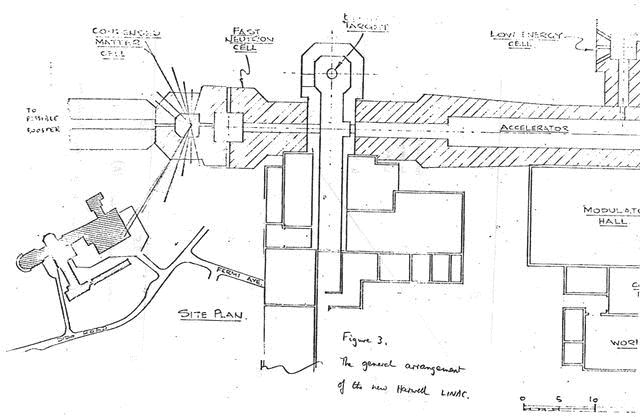 CONDENSED
MATTER
CELL
FAST
NEUTRON
CELL
TARGET
LOW ENERGY
CELL
TO
POSSIBLE
BOOSTER
ACCELERATOR
MODULATO
HALL
FERMI AVE.
SITE PLAN.
WOR
Figure 3.
The general arrangement
of the new Harwell LINAC.
0 5 10